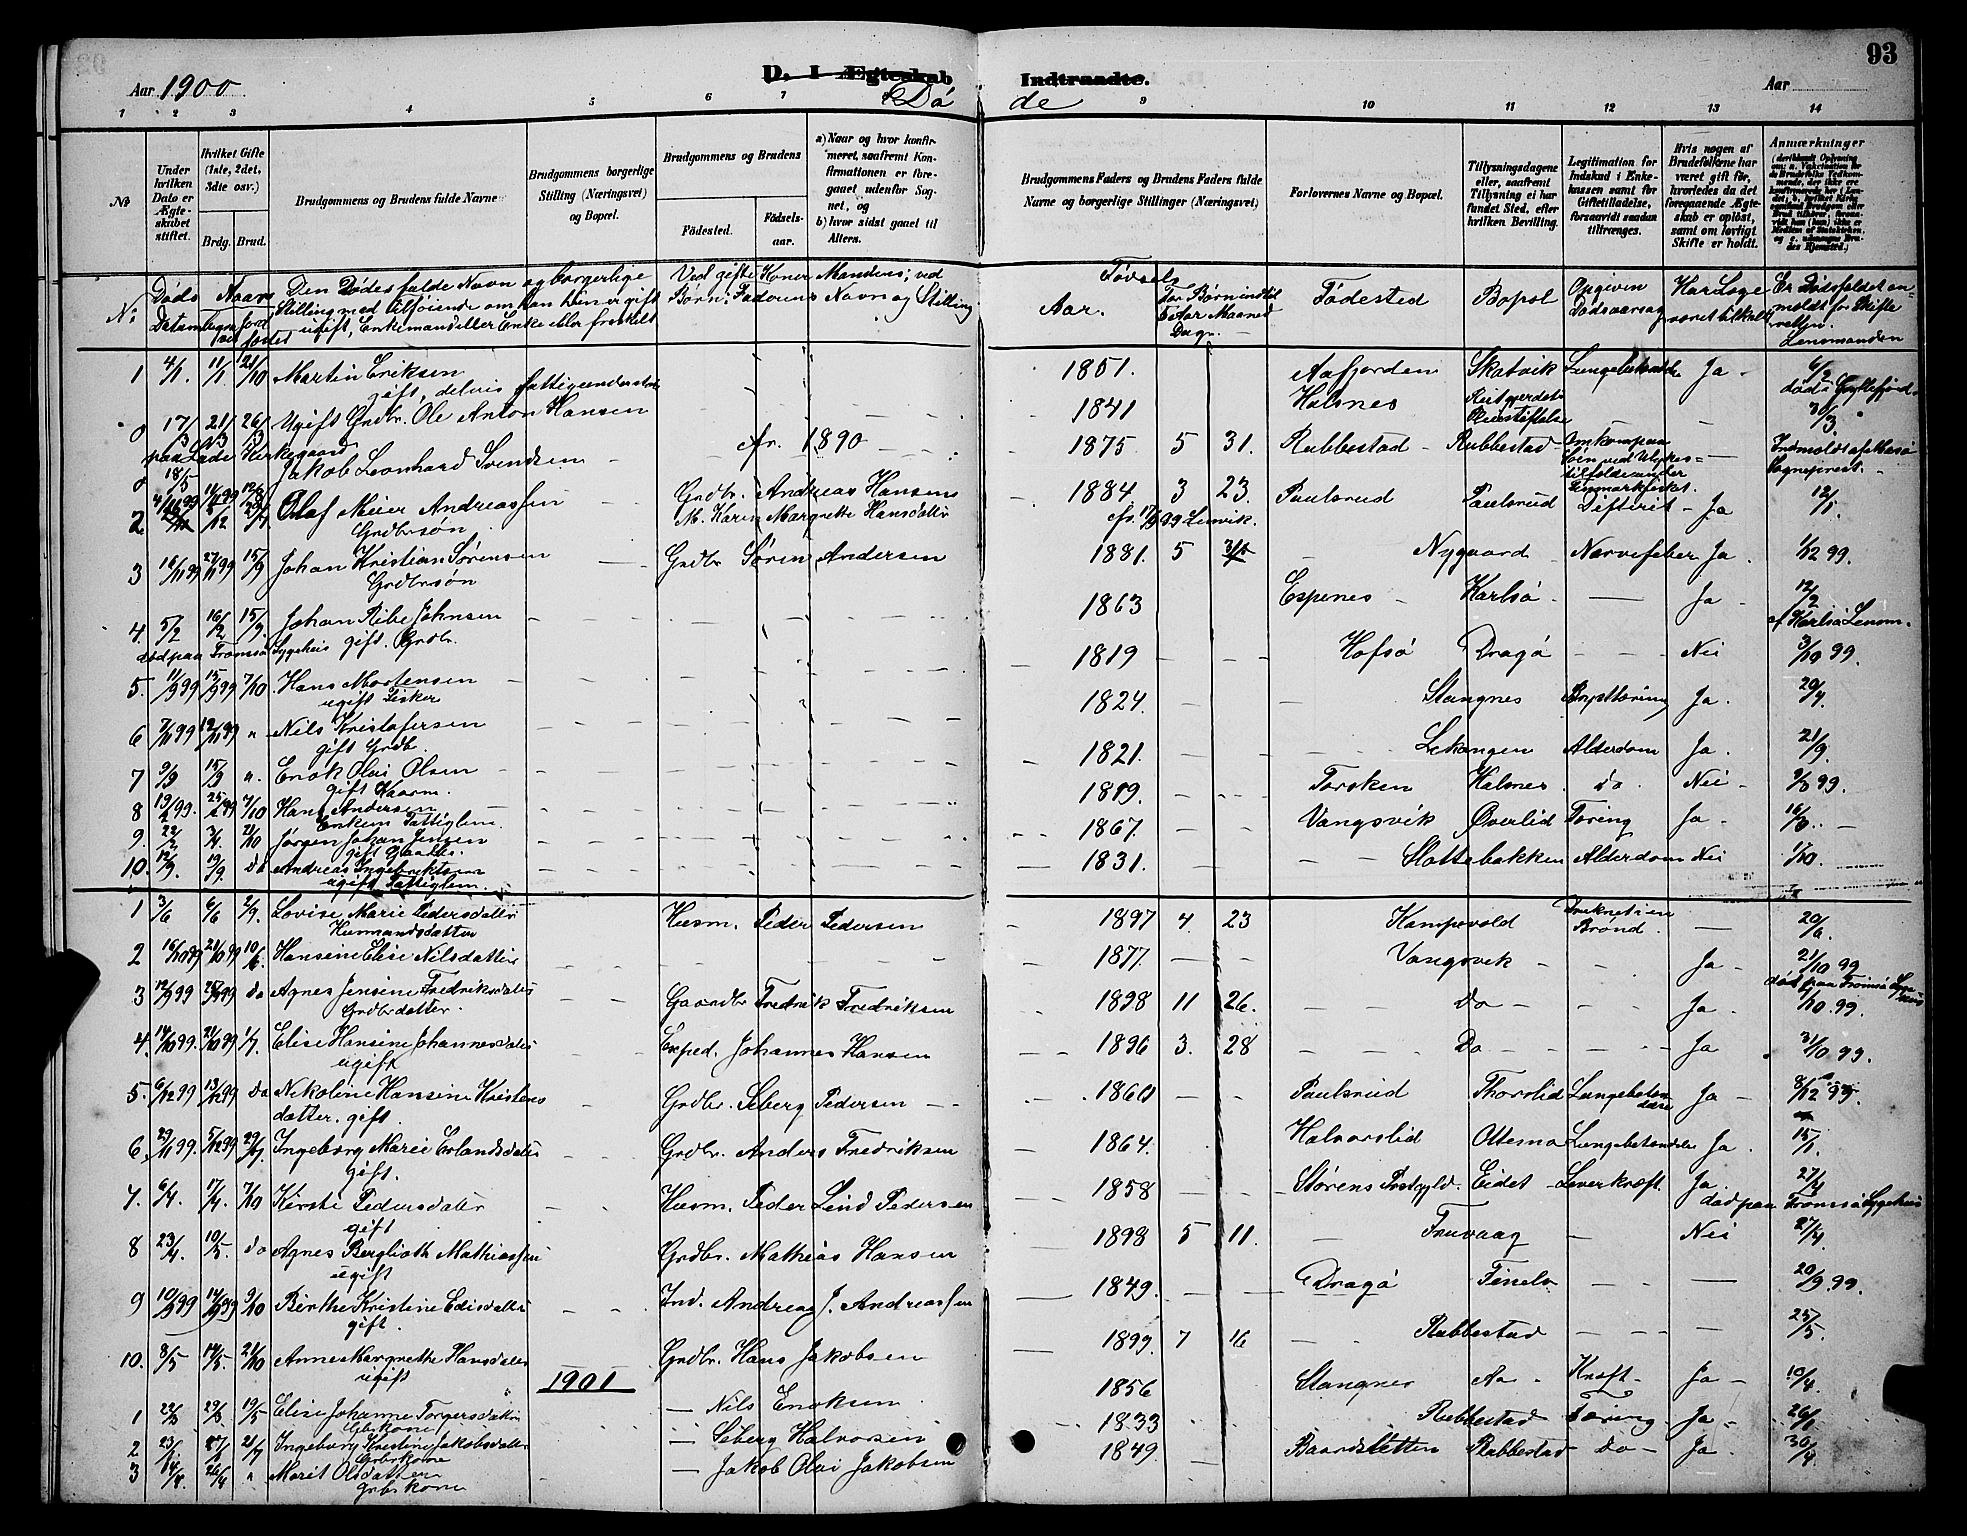 93
Aar 1900
D. I Ægteskab Indtraadte.
Aar
Døde
1 2 3 4 5 6 7 8 9 10 11 12 13 14
No
Under hvilken Dato er Ægteskabet stiftet.
Hvilket Gifte (1ste, 2det, 3die osv.)
Brdg. Brud.
Brudgommens og Brudens fulde Navne
Brudgommens borgerlige Stilling (Næringsvei) og Bopæl.
Brudgommens og Brudens
Fødested. Fødselsaar.
a) Naar og hvor konfirmeret, saafremt Konfirmationen er foregaaet udenfor Sognet, og
b) hvor sidst gaaet til Alters.
Brudgommens Faders og Brudens Faders fulde Navne og borgerlige Stillinger (Næringsvei)
Forlovernes Navne og Bopæl.
Tillysningsdagene eller, saafremt Tillysning ei har fundet Sted, efter hvilken Bevilling.
Legitimation for Indskud i Enkekassen samt for Giftetilladelse, forsaavidt saadan tiltrænges.
Hvis nogen af Brudefolkene har været gift før, hvorledes da det foregaaende Ægteskab er opløst, samt om lovligt Skifte er holdt.
Anmærkninger
Den Dødes fulde Navn og borgerlige Stilling med tilføiende om han hun er gift ugift, Enkemand eller Enke eller fraskilt
Ved gifte Koner Mandens; ved Børn: Faderens Navn og Stilling
Fødsels Aar. For Børn indtil 5 Aar Maaned Dage
Fødested Bopæl Opgiven Dødsaarsag Har Læge været tilkaldt Er Dødsfaldet anmeldt for Skifteretten. Lensmanden
1 4/1. 11/1 21/10 Martin Eriksen 1851. Aafjorden Skatvik Lungebetændelse Ja 6/2
gift, delvis fattigunderstøt død i Gryllefjord
0 17/3 21/3 26/3 Ugift Grdbr. Ole Anton Hansen 1841 Halsnes 31/3
paa Lade Kirkegaard
0 18/5 Jakob Leonhard Svendsen fr. 1890 1875 5 31. Rubbestad Rubbestad Omkommen
2 Olaf Meier Andreassen Grdbr. Andreas Hansens 1884. 3 23. Paulsrud Paulsrud Difterit Ja 12/1.
Grdbrsøn M. Karen Margrethe Hansdatter
3 16/11 99 27/11 99 15/9 Johan Kristian Sørensen Grdbr Søren Andersen 1881. 5 Nygaard Nervefeber Ja. 1/12 99.
Grdbrsøn
4. 5/2 16/2 15/9. Johan Ribe Johnsen 1863 Espenes Karlsø Ja 12/2
død paa Tromsø Sygehus gift. Grdbr. af Karlsø Lensm.
5. 11/9 99 15/9 99 7/10 Hans Mortensen 1819 Hofsø Dragø Nei 3/10 99.
ugift Fisker
6 7/11 99 12/11 99 " Nils Kristofersen 1824. Stangnes Brysttæring Ja. 20/4.
gift Grdb.
7 9/9 15/9 ". Enok Olai Olsen 1821. Lekangen Alderdom Ja. 21/9.
gift Kaarm.
8 19/2 99. 25/2 99 7/10 Hans Andersen 1819. Torsken Halsnes do. Nei 9/8 99.
Enkem Fattiglem.
9. 22/2 3/4. 21/10 Jørgen Johan Jensen 1867. Vangsvik Øverlid Tæring Ja. 16/3.
10. 12/9. 19/9. Do Andreas Ingebriktsen 1831. Slottebakken Alderdom Nei 1/10.
ugift Fattiglem.
1 3/6 6/6 2/9. Lovise Marie Pedersdatter Husm. Peder Pedersen 1897 4. 23 Kampevold Druknet i en Brønd. 20/6.
Husmandsdatter
2 16/10 99 21/10 99 10/6. Hansine Elise Nilsdatter 1877. Vangsvik Ja 21/10 99
død paa Tromsø Sygehus
3 12/9 99 25/9 99 do Agnes Jensine Fredriksdatter Gaardbr Fredrik Fredriksen 1898 11 26. Do Ja. 1/10. 99.
Grdbrdatter.
4. 14/10 99. 21/10 99 1/7. Elise Hansine Johannesdatter Exped. Johannes Hansen 1896 3. 28 Do Ja 31/10 99.
ugift
5. 6/12 99 13/12 99 Do Nikoline Hansine Kristens Grdbr. Seberg Pedersen 1860 Paulsrud Thorslid Lungebetændelse Ja 8/12 99.
datter. gift
6. 29/11 99 5/12 99 29/7. Ingeborg Marie Erlandsdatter Grdbr. Anders Fredriksen 1864. Halvorslid Ottemo Lungebetændelse Ja. 15/1.
gift.
7. 6/4. 17/4. 7/10 Kirsti Pedersdatter Husm. Peder Lind Pedersen 1858 Størens Præstgjld. Eidet Leverkræft. Ja. 27/4
gift død paa Tromsø Sygehus
8 23/4. 10/5. do Agnes Berglioth Mathiassen Grdbr. Mathias Hansen 1898 5 11. Fruvaag Nei 27/4.
ugift
9 10/9 99 14/9 99 9/10 Birthe Kristine Edisdatter Ind. Andreas J. Andreassen 1849. Dragø Finelv 20/9 99.
gift.
10. 8/5 14/5. 21/10 Anne Margrethe Hansdatter Grdbr. Hans Jakobsen 1899. 7 16 Rubbestad 25/5.
ugift
1901
1 22/3 29/3. 19/5 Elise Johanne Torgersdatter Nils Enoksen 1856 Stangnes Aa Kræft Ja 10/4.
Gbrkone
2 23/1 21/7 Ingeborg Kristine Jakobsdatter Seberg Halvorsen 1833 Rubbestad Tæring Ja 26/1
Gbrkone
3 14/4. 26/4 " Marit Olsdatter Jakob Olai Jakobsen 1849. Baardsletten Rubbestad Do Ja. 30/4.
Grbrkone